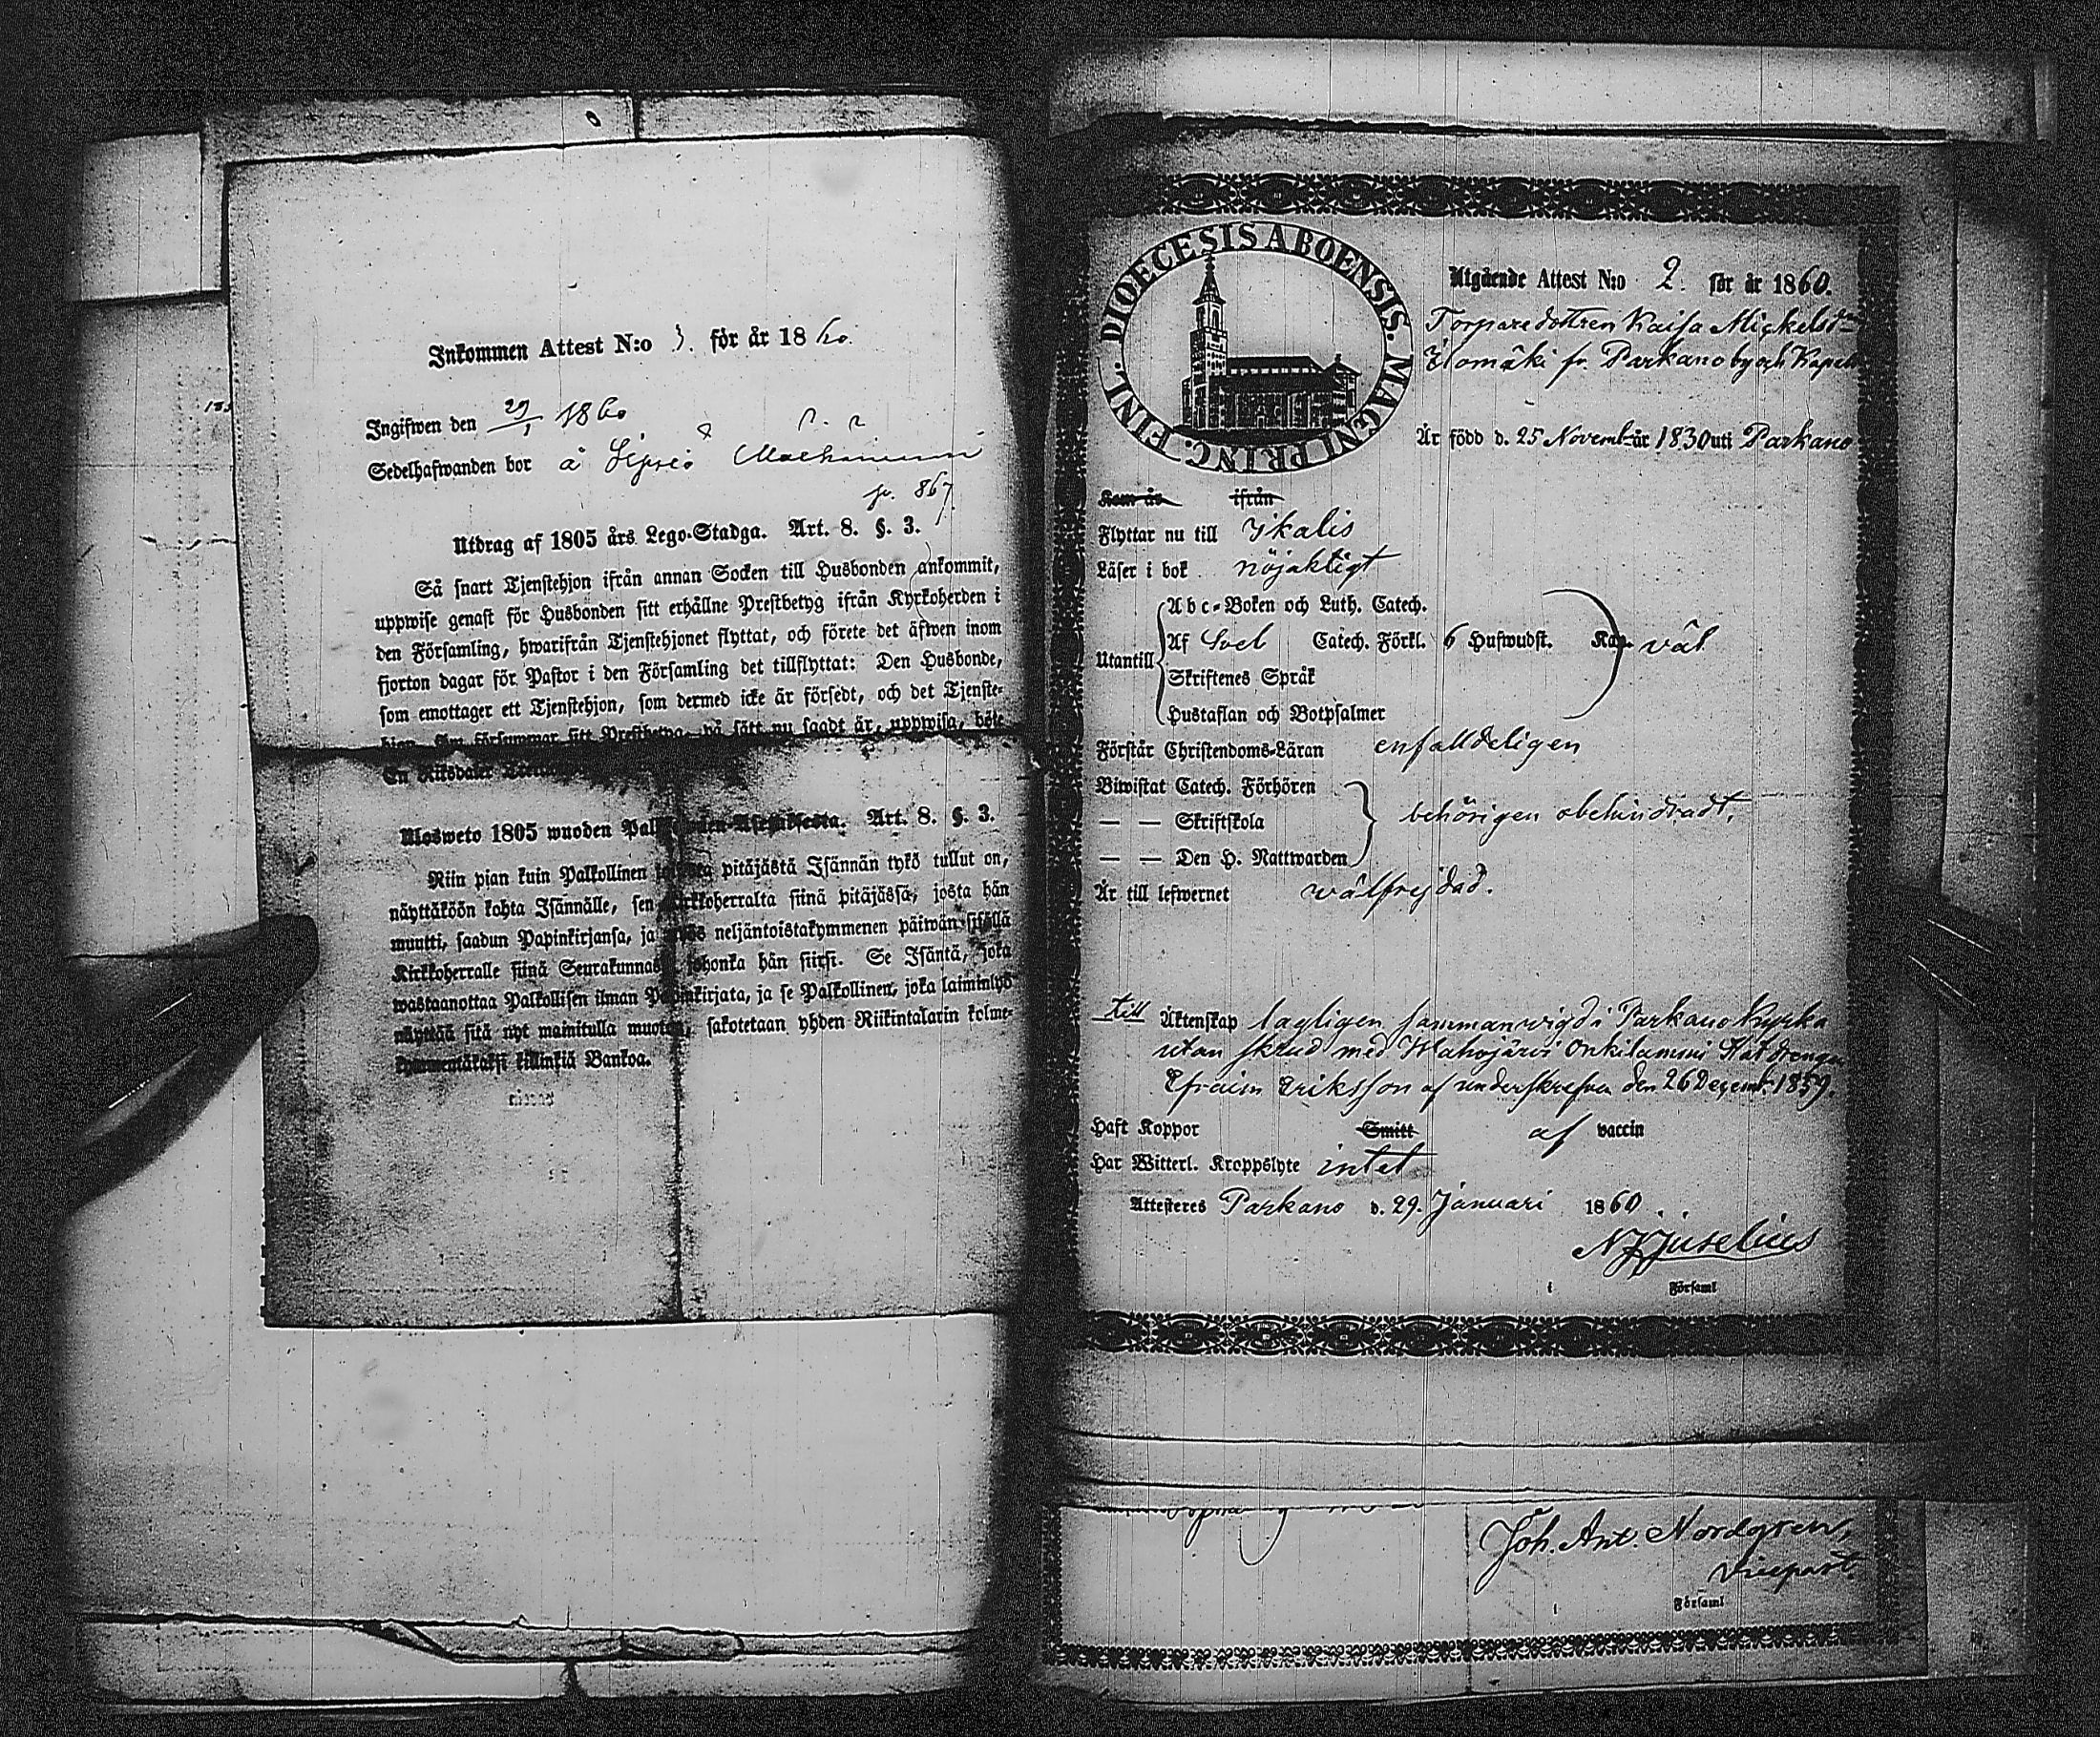 Inkommen Attest N:o 3. för år 1860.
Ingifwen den 29/1 1860
Sedelhafwanden bor å
p. 867.
Utdrag af 1805 års Lego-Stadga. Art. 8. §. 3.
Så snart Tjenstehjon ifrån annan Socken till Husbonden ankommit,
uppwise genast för Husbonden sitt erhållne Prestbetyg ifrån Kyrkoherden i
den Församling, hwarifrån Tjenstehjonet flyttat, och förete det äfwen inom
fjorton dagar för Pastor i den Församling det tillflyttat: Den Husbonde,
som emottager ett Tjenstehjon, som dermed icke är försedt, och det Tjenste-
hjon, Om försummar sitt Prestbetyg, på sätt nu sagdt är, uppwisa, böte
En Riksdaler
Ulosweto 1805 wuoden Art. 8. §. 3.
Niin pian kuin Palkollinen pitäjästä Isännän tykö tullut on,
näyttäköön kohta Isännälle, sen Kirkkoherralta siinä pitäjässä, josta hän
muutti, saadun Papinkirjansa, ja myös neljäntoistakymmenen päiwän sisällä
Kirkkoherralle siinä Seurakunnas johonka hän siirsi. Se Isäntä, joka
wastaanottaa Palkollisen ilman Papinkirjata, ja se Palkollinen, joka laiminlyö
näyttää sitä nyt mainitulla muoton, sakotetaan yhden Riikintalarin kolme-
kymmentäkaksi killinkiä Bankoa.
DIOECESIS ABOENSIS. MAGNI PRINC. FINL.
Utgående Attest N:o 2. för år 1860.
Torparedottren Kaisa Mickelsdr
Ylomäki fr. Parkano by och Kapell
Är född d. 25 Novemb. år 1830 uti Parkano
Kom år ifrån
Flyttar nu till Ikalis
Läser i bok nöjaktigt
Abc-Boken och Luth. Catech.
Utantill Af Sveb Catech. Förkl. 6 Hufwudst. Kap. väl
Skriftenes Språk
Hustaflan och Botpsalmer
Förstår Christendoms-Läran enfalldeligen
Biwistat Catech. Förhören
— — Skriftskola behörigen obehindradt.
— — Den H. Nattwarden
Är till lefwernet wälfrejdad.
till Äktenskap lagligen sammanwigd i Parkano Kyrka
utan skrud med Wahojärvi Onkilammi Statdrengen
Efraim Eriksson af underskrefven den 26 Decemb. 1859.
Haft Koppor Smitt af vaccin
Har Witterl. Kroppslyte intet
Attesteres Parkano d. 29. Januari 1860.
Juselius
i Församl
Joh. Ant. Nordgren,
Vicepast.
i Församl